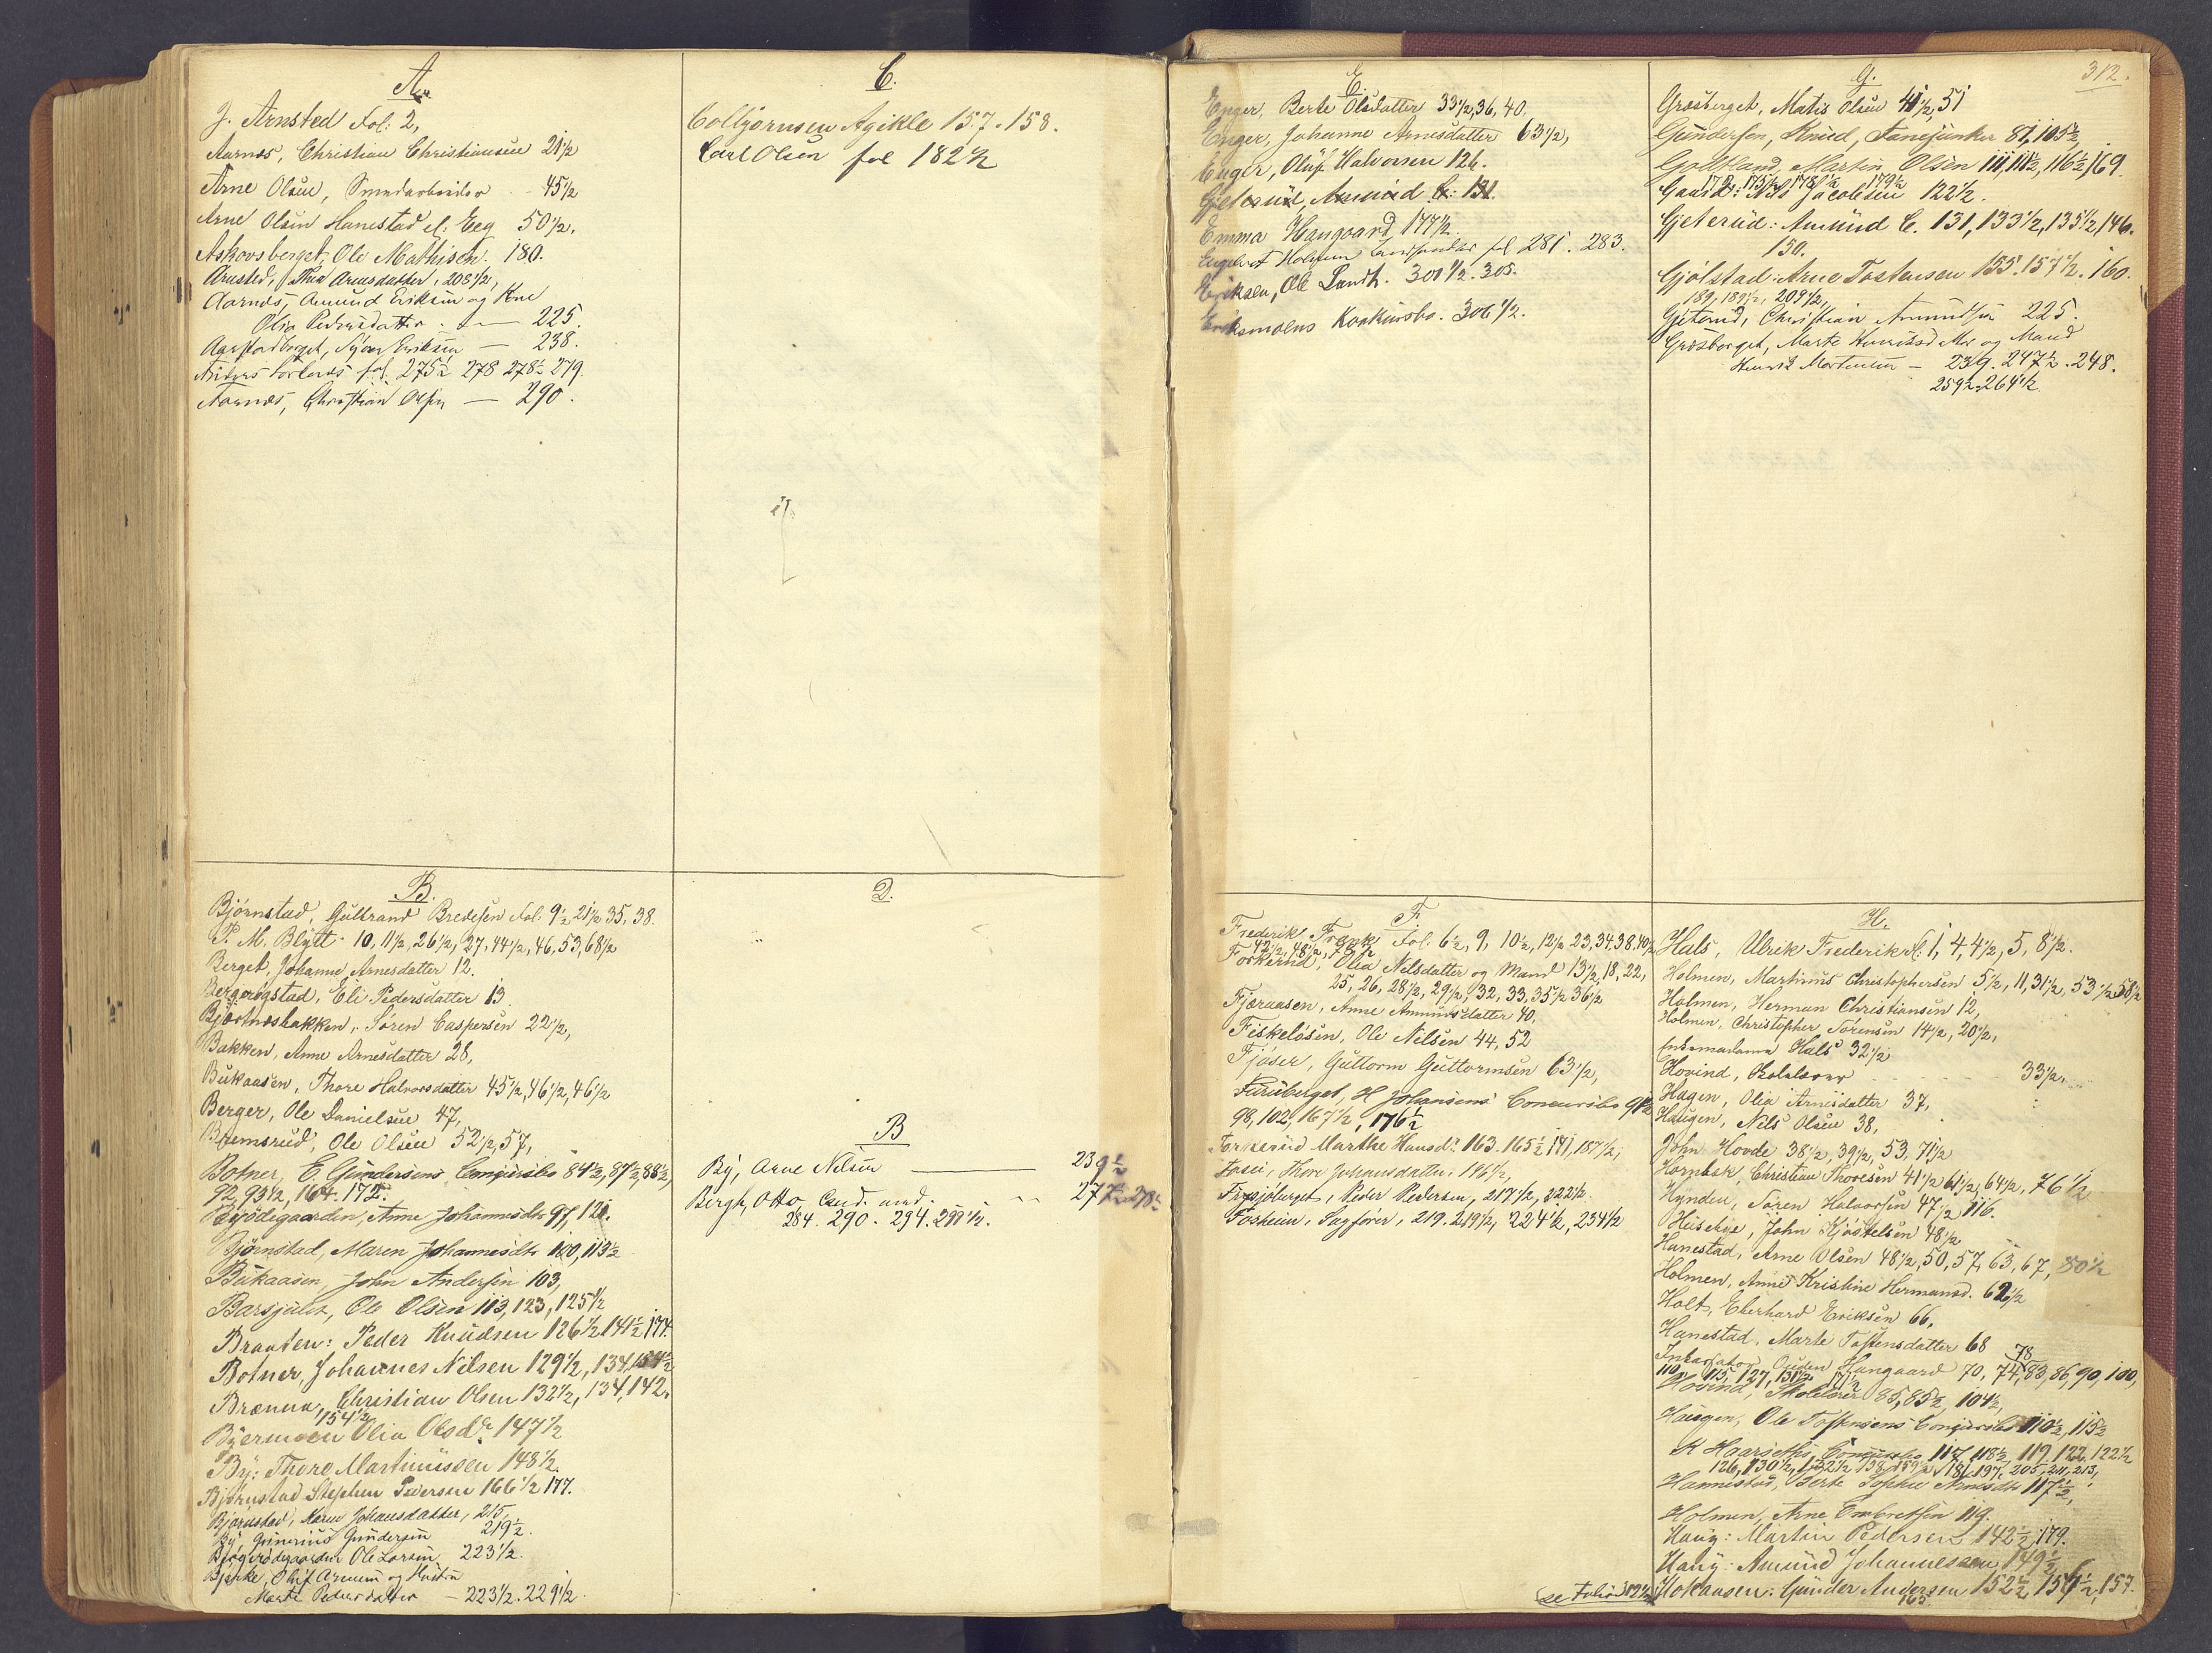 A.
J. Arnsted Fol: 2,
Aarnæs, Christian Christiansen 21½
Arne Olsen, Smedarbeider 45½
Arne Olsen Hanestad el: Eeg 50½.
Askovsberget, Ole Mathisen. 180.
Arnsted, Thea Arnesdatter, 208½,
Aarnæs, Amund Eriksen og Kone
Olia Pedersdatter. — 225.
Eriksen — 238.
Anders fol. 275½ 278 278½ 279.
Aarnæs, Christian Olsen — 290.
B.
Bjørnstad, Gulbrand Bredesen Fol: 9½ 21½ 35, 38.
P. M. Blytt 10, 11½, 26½, 27, 44½, 46, 53, 68½
Berget, Johanne Arnesdatter 12.
Bergerøgstad, Eli Pedersdatter 13.
Søren Caspersen 22½,
Bakken, Anne Arnesdatter 28,
Bukaasen, Thore Halvorsdatter 45½, 46½, 46½
Berger, Ole Danielsen 47,
Bremsrud, Ole Olsen 52½, 57,
Botner, E. Gundersens Concursbo 84½, 87½, 88½,
92, 93½, 164. 172.
Anne Johannesdtr 97, 121.
Bjørnstad, Maren Johannesdtr 100, 113½
Bukaasen, John Andersen 103,
Ole Olsen 113, 123, 125½
Braaten: Peder Knudsen 126½ 141½ 174.
Botner, Johannes Nilsen 129½, 134, 154½
Brænna, Christian Olsen 132½, 134, 142.
154½
Byermoen Olia Olsdr 147½
By: Thore Martinussen 148½.
Bjørnstad Stephen Pedersen 166½ 177.
Bjørnstad, Karen Johansdatter, 215,
By Gunerius Gundersen 219½.
Ole Larsen 223½.
Bjerke, Oluf Arnesen og Hustru
Marte Pedersdatter — 223½. 229½.
C.
Colbjørnsen Agikle 157. 158.
Carl Olsen fol 182½
D.
B
By, Arne Nilsen — 239½
Bergh, Otto, Cand. med. 277½ 278½
284. 290. 294. 299½.
312.
E.
Enger, Berte Olsdatter 33½, 36, 40.
Enger, Johanne Arnesdatter 63½,
Enger, Oluf Halvorsen 126.
Gjeterud, Amund C. 131.
Emma Haugaard 177½.
Engebret Holmen fol 281. 283.
Eriksen, Ole Landh. 300½. 305.
Eriksmoens Konkursbo. 306½.
F.
Frederik Frank Fol: 6½, 9, 10½, 12½ 23, 34. 38. 40½
42½, 48½, 78½
Foskerud, Olia Nilsdatter og Mand 13½, 18, 22,
25, 26, 28½, 29½, 32, 33, 35½ 36½
Fjæraasen, Anne Amundsdatter 40.
Fiskeløsen, Ole Nilsen 44, 52
Fjøser, Guttorm Guttormsen 63½,
Furuberget, H Johansens Concursbo 91½
98, 102, 167½, 176½
Foskerud Marthe Hansdr 163. 165½ 171, 187½,
Fossen, Thore Johansdatter. 196½,
Peder Pedersen, 217½, 222½.
Fosheim, Sagfører, 219. 219½, 224½, 234½
G.
Græsberget, Matis Olsen 41½, 51
Gundersen, Knud, Fanejunker 81, 105½,
Goltland, Martin Olsen 111, 111½, 116½, 169.
172. 175½, 178½ 179½
Gaard: Nils Jacobsen 122½.
Gjeterud: Amund C. 131, 133½, 135½, 146.
150.
Gjølstad: Arne Tostensen 155. 157½. 160.
189, 189½, 209½,
Gjeterud, Christian Amundsen 225.
Græsberget, Marte Henriksd Mor og Mand
Henrik Mortensen — 239. 247½. 248.
259½. 264½.
H.
Hals, Ulrik Frederik fl: 1, 4, 4½, 5, 8½.
Holmen, Martinus Christophersen 5½, 11, 31½, 53½, 58½
Holmen, Herman Christiansen 12,
Holmen, Christopher Sørensen 14½, 20½,
Enkemadame Hals 32½
Hovind, Skolelærer 33½.
Hagen, Olia Arnesdatter 37,
Haugen, Nils Olsen 38,
John Hovde 38½, 39½, 53. 71½
Hornbæk, Christian Thoresen 41½ 61½, 64½, 76½
Hynden, Søren Halvorsen 47½ 116.
Huseby, John Kjøstelsen 48½
Hanestad, Arne Olsen 48½, 50, 57, 63, 67, 80½
Holmen, Anne Kristine Hermansd. 62½
Holt, Eberhard Eriksen 66,
Hanestad, Marte Tostensdatter 68
Inkassator Ouden Haugaard 70, 74, 78 83, 86, 90, 100,
110, 115, 127, 131½ 171½
Hovind, Skolelærer 85, 85½, 104½,
Haugen, Ole Tostensens Concursbo 110½, 115½
K Haarseths Concursbo 117, 118½, 119. 122, 122½
126, 130½, 132½ 138, 139½, 181, 197. 205, 211, 213,
Hannestad, Berte Sophie Arnesdtr 117½,
Holmen, Arne Embretsen 119.
Haug: Martin Pedersen 142½, 179.
Haug: Amund Johannessen 149½
Hokaasen: Gunder Andersen 152½, 156½, 157.
165.
se Folio 312½